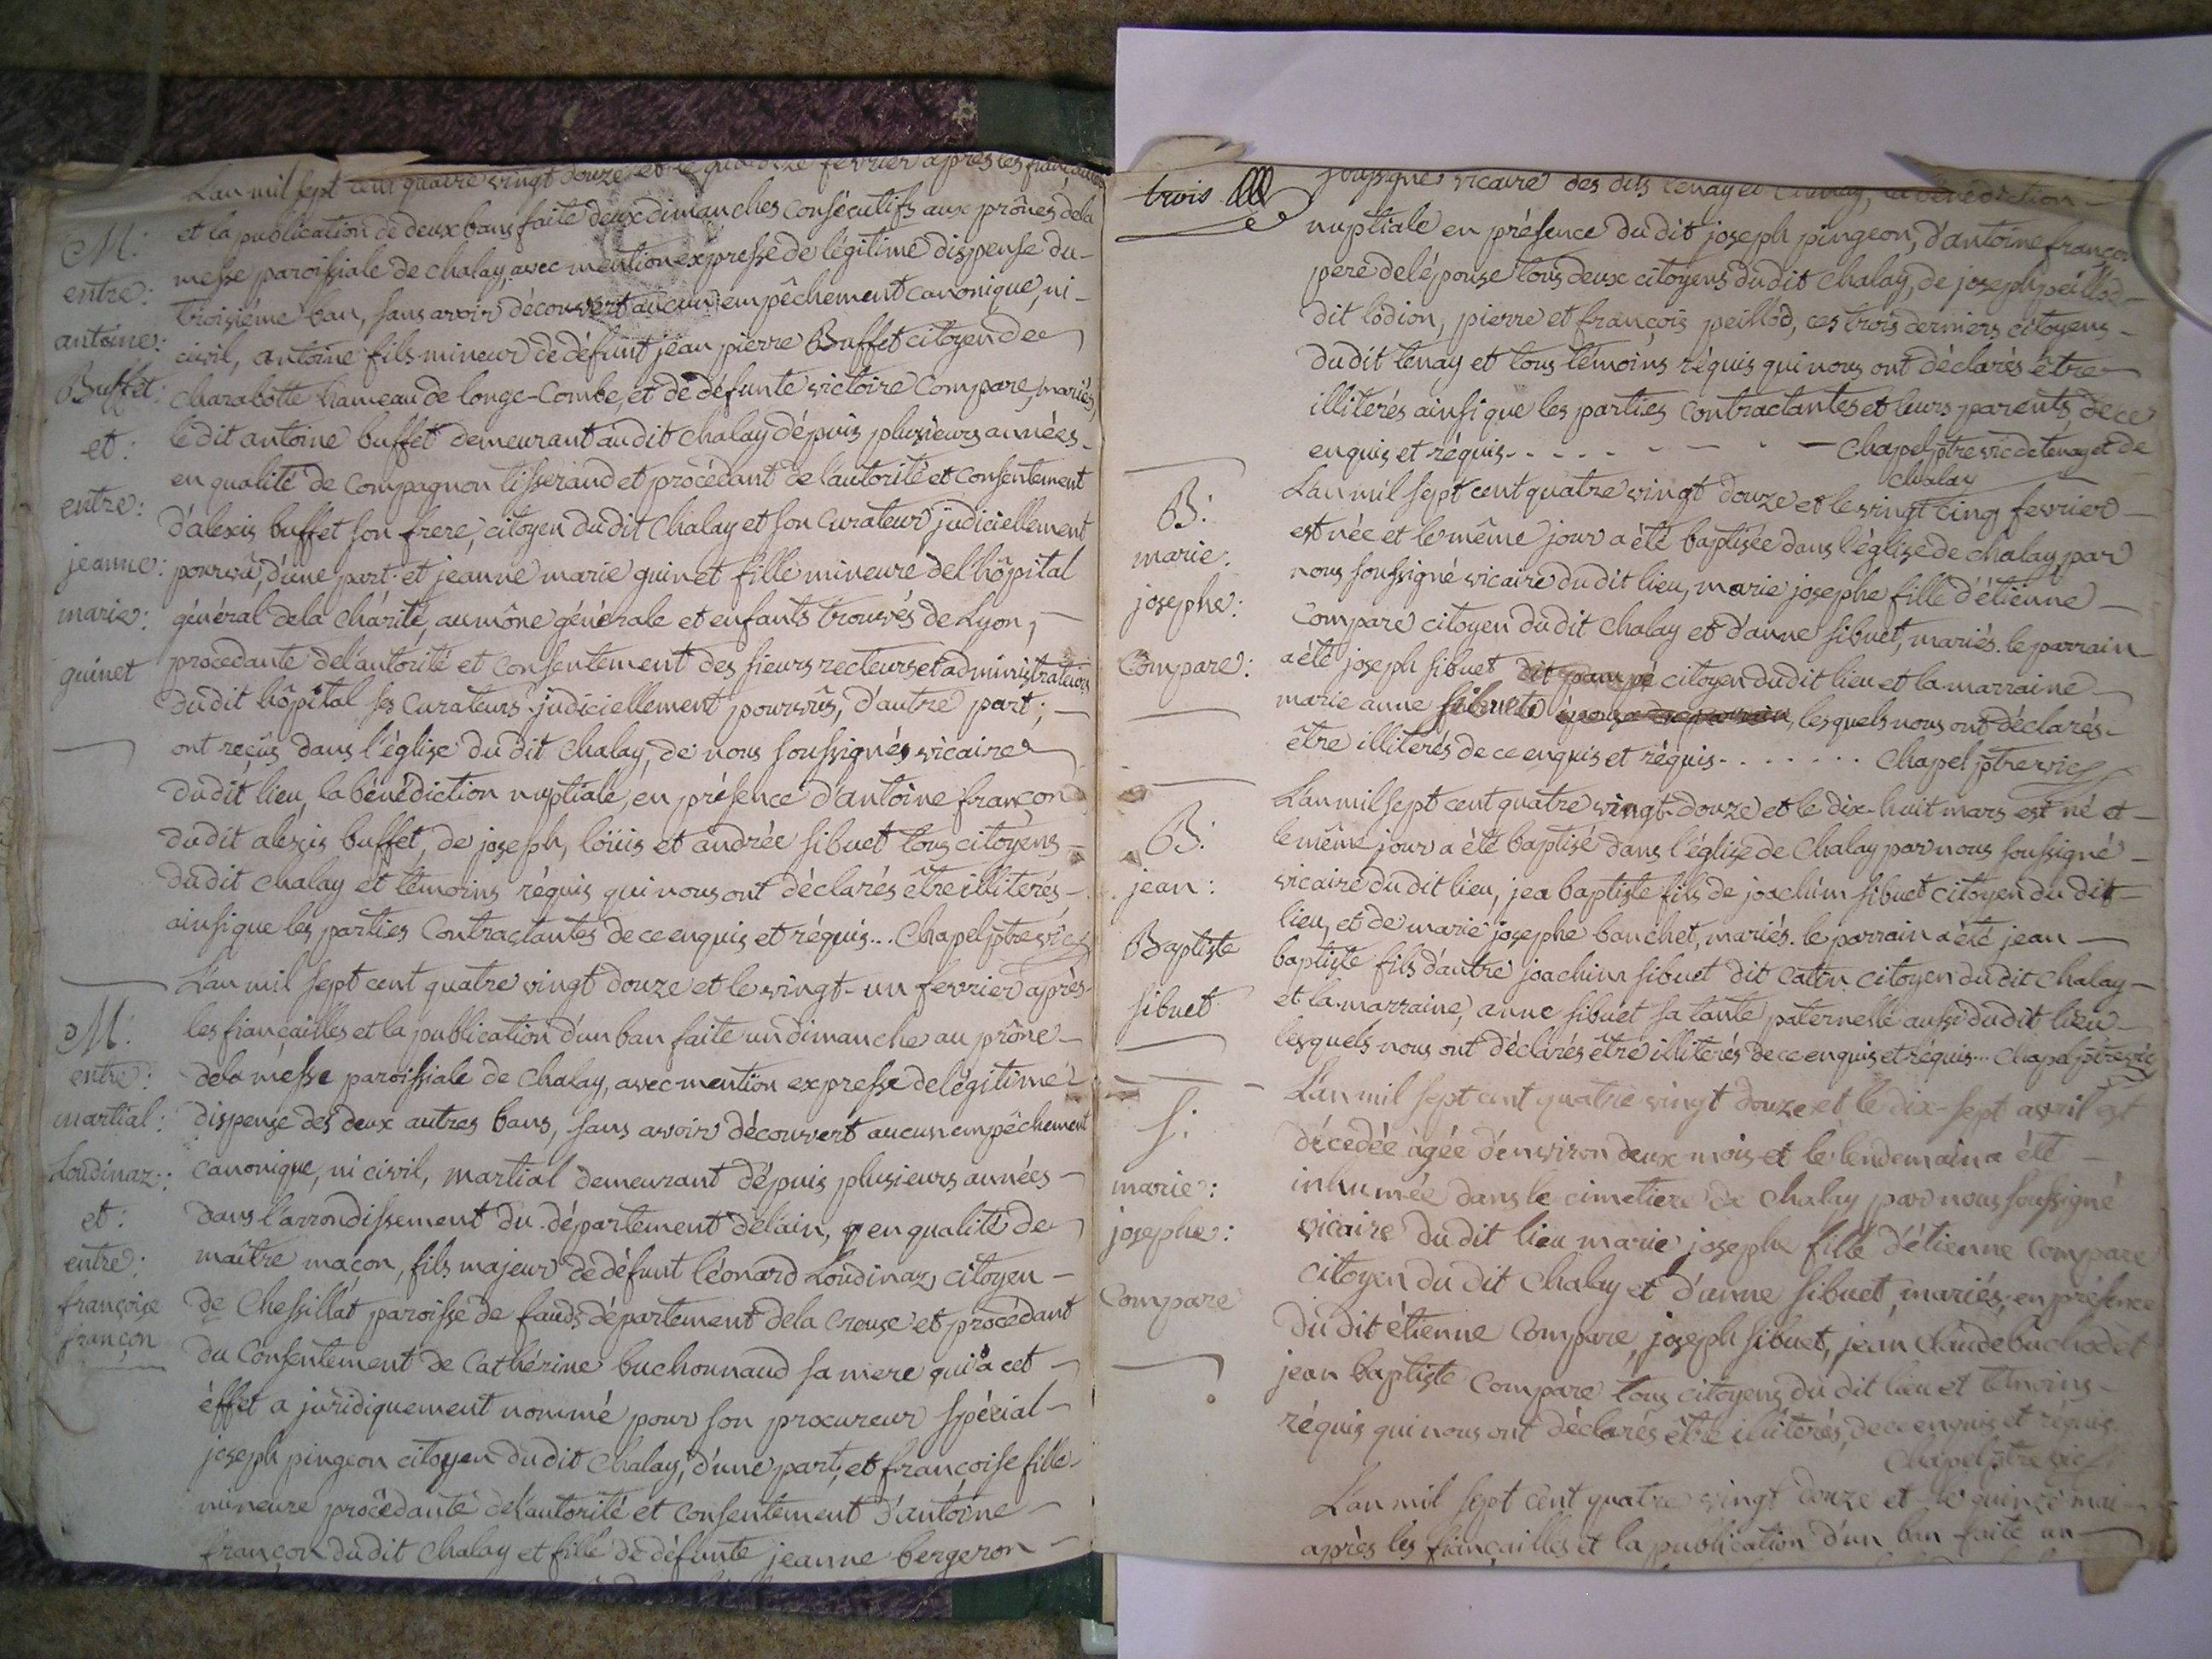 L'an mil sept cent quatre vingt douze et le quatorze fevrier après les fiançailles
et la publication de deux bans faite deux dimanches consécutifs aux prônes dela
messe paroissiale de chalay, avec mention expresse de légitime dispense du
troisiéme ban, sans avoir découvert aucun empêchement canonique, ni
civil, antoine fils mineur de défunt jean pierre Buffet citoyen de
charabotte hameau de longe-Combe, et de défunte victoire Compare, mariés,
le dit antoine buffet demeurant au dit chalay dépuis plusieurs années
en qualité de Compagnon tisserand et procédant de l'autorité et Consentement
d'alexis buffet son frere, citoyen du dit Chalay et son Curateur judiciellement
pourvû, d'une part et jeanne marie guinet fille mineure del'hôpital
général dela Charité, aumône générale et enfants trouvés de Lyon,
procedante del'autorité et Consentement des sieurs recteurs et administrateurs
du dit hôpital ses Curateurs judiciellement pourvûs, d'autre part;
ont reçûs dans l'église du dit Chalay, de nous soussignés vicaire
du dit lieu, la bénédiction nuptiale, en présence d'antoine françon
du dit alexis buffet, de joseph, loüis et andrée sibuet tous citoyens
du dit chalay et témoins réquis qui nous ont déclarés être illiterés
ainsi que les parties Contractantes de ce enquis et réquis... Chapel ptre vic
M:
entre:
antoine:
Buffet:
et:
entre:
jeanne:
marie:
guinet
L'an mil sept cent quatre vingt douze et le vingt-un fevrier après
les fiançailles et la publication d'un ban faite un dimanche au prône
dela messe paroissiale de Chalay, avec mention expresse de légitime
dispense des deux autres bans, sans avoir découvert aucun empêchement
canonique, ni civil, martial demeurant dépuis plusieurs années
dans l'arrondissement du département delain, en qualité de
maître maçon, fils majeur de défunt léonard Loudinaz citoyen
de Chessillat paroisse de fauds département dela Creuse et procédant
du Consentement de Cathérine buchonnaud sa mere qui à cet
éffet a juridiquement nommé pour son procureur spécial
joseph pingeon citoyen du dit Chalay, d'une part, et françoise fille
mineure procédante del'autorité et consentement d'antoine
françon du dit Chalay et fille de défunte jeanne bergeron
M:
entre:
martial:
Loudinaz:
et:
entre:
françoise
françon
trois
soussigné vicaire des dits tenay et Chalay, la bénédiction
nuptiale en présence du dit joseph pingeon, d'antoine françon
pere del'épouse tous deux citoyens du dit Chalay, de joseph peillod
dit lodion, pierre et françois peillod, ces trois derniers citoyens
du dit tenay et tous témoins réquis qui nous ont déclarés être
illiterés ainsi que les parties Contractantes et leurs parents de ce
enquis et réquis. . . . . . Chapel ptre vic de tenay et de
chalay
B:
marie:
josephe:
Compare:
L'an mil sept cent quatre vingt douze et le vingt cinq fevrier
est née et le même jour a été baptisée dans l'église de chalay par
nous soussigné vicaire du dit lieu, marie josephe fille d'étienne
Compare citoyen du dit Chalay et d'anne sibuet, mariés. le parrain
a été joseph sibuet citoyen du dit lieu et la marraine
marie anne sibuet, lesquels nous ont déclarés
être illiterés de ce enquis et réquis. . . . . . . Chapel ptre vic
B:
jean:
Baptiste
sibuet
L'an mil sept cent quatre vingt-douze et le dix-huit mars est né et
le même jour a été baptisé dans l'église de Chalay par nous soussigné
vicaire du dit lieu, jea baptiste fils de joachim sibuet citoyen du dit
lieu, et de marie josephe banchet, mariés. le parrain a été jean
baptiste fils d'autre joachim sibuet dit Catin citoyen du dit Chalay
et la marraine, anne sibuet sa tante paternelle aussi du dit lieu
lesquels nous ont déclarés être illiterés de ce enquis et réquis... Chapel ptre vic
S:
marie:
josephe:
Compare
L'an mil sept cent quatre vingt douze et le dix-sept avril est
décedée àgée d'environ deux mois et le lendemain a été
inhumée dans le cimetiere de Chalay par nous soussigné
vicaire du dit lieu marie josephe fille d'étienne Compare
citoyen du dit Chalay et d'anne sibuet, mariés; en présence
du dit étienne Compare, joseph sibuet, jean Claude buchod et
jean baptiste Compare tous citoyens du dit lieu et témoins
réquis qui nous ont déclarés être illiterés, de ce enquis et réquis.
Chapel ptre vic
L'an mil sept cent quatre vingt douze et le quinze mai
après les fiançailles et la publication d'un ban faite un